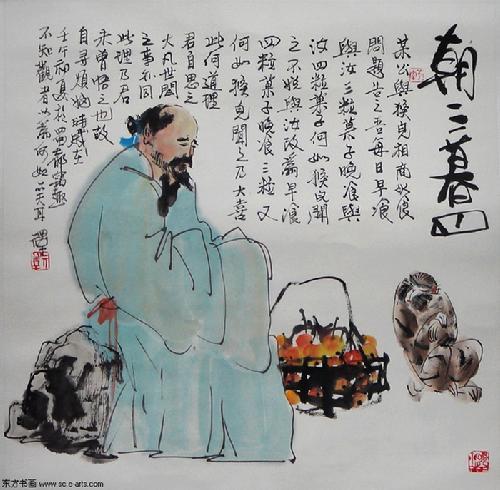 朝三暮四
某公與猴兒相商以食
問題告之吾每日早飡
與汝三粒菓子晚飡與
汝四粒菓子何如猴兒聞
之不悅與汝改為早飡
四粒菓子晚飡三粒又
何如猴兒聞之乃大喜
此何道理
君自思之
大凡世間
之事如同
此理乃君
未曾悟之也故
自尋煩惱時
壬午初夏於
不知觀者以為何如
东方书画 www.sce-arts.com